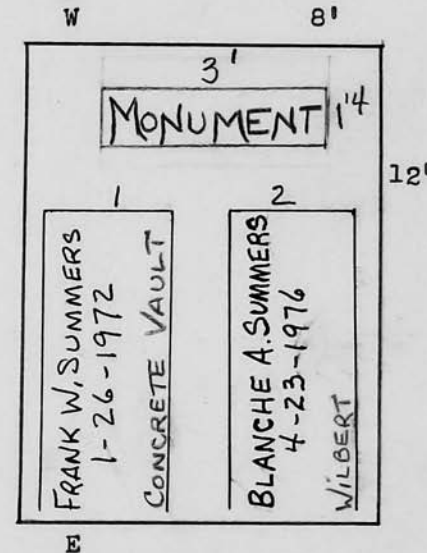 W 8'
3'
MONUMENT 1'4
12'
1 2
FRANK W. SUMMERS
1-26-1972
CONCRETE VAULT
BLANCHE A. SUMMERS
4-23-1976
WILBERT
E